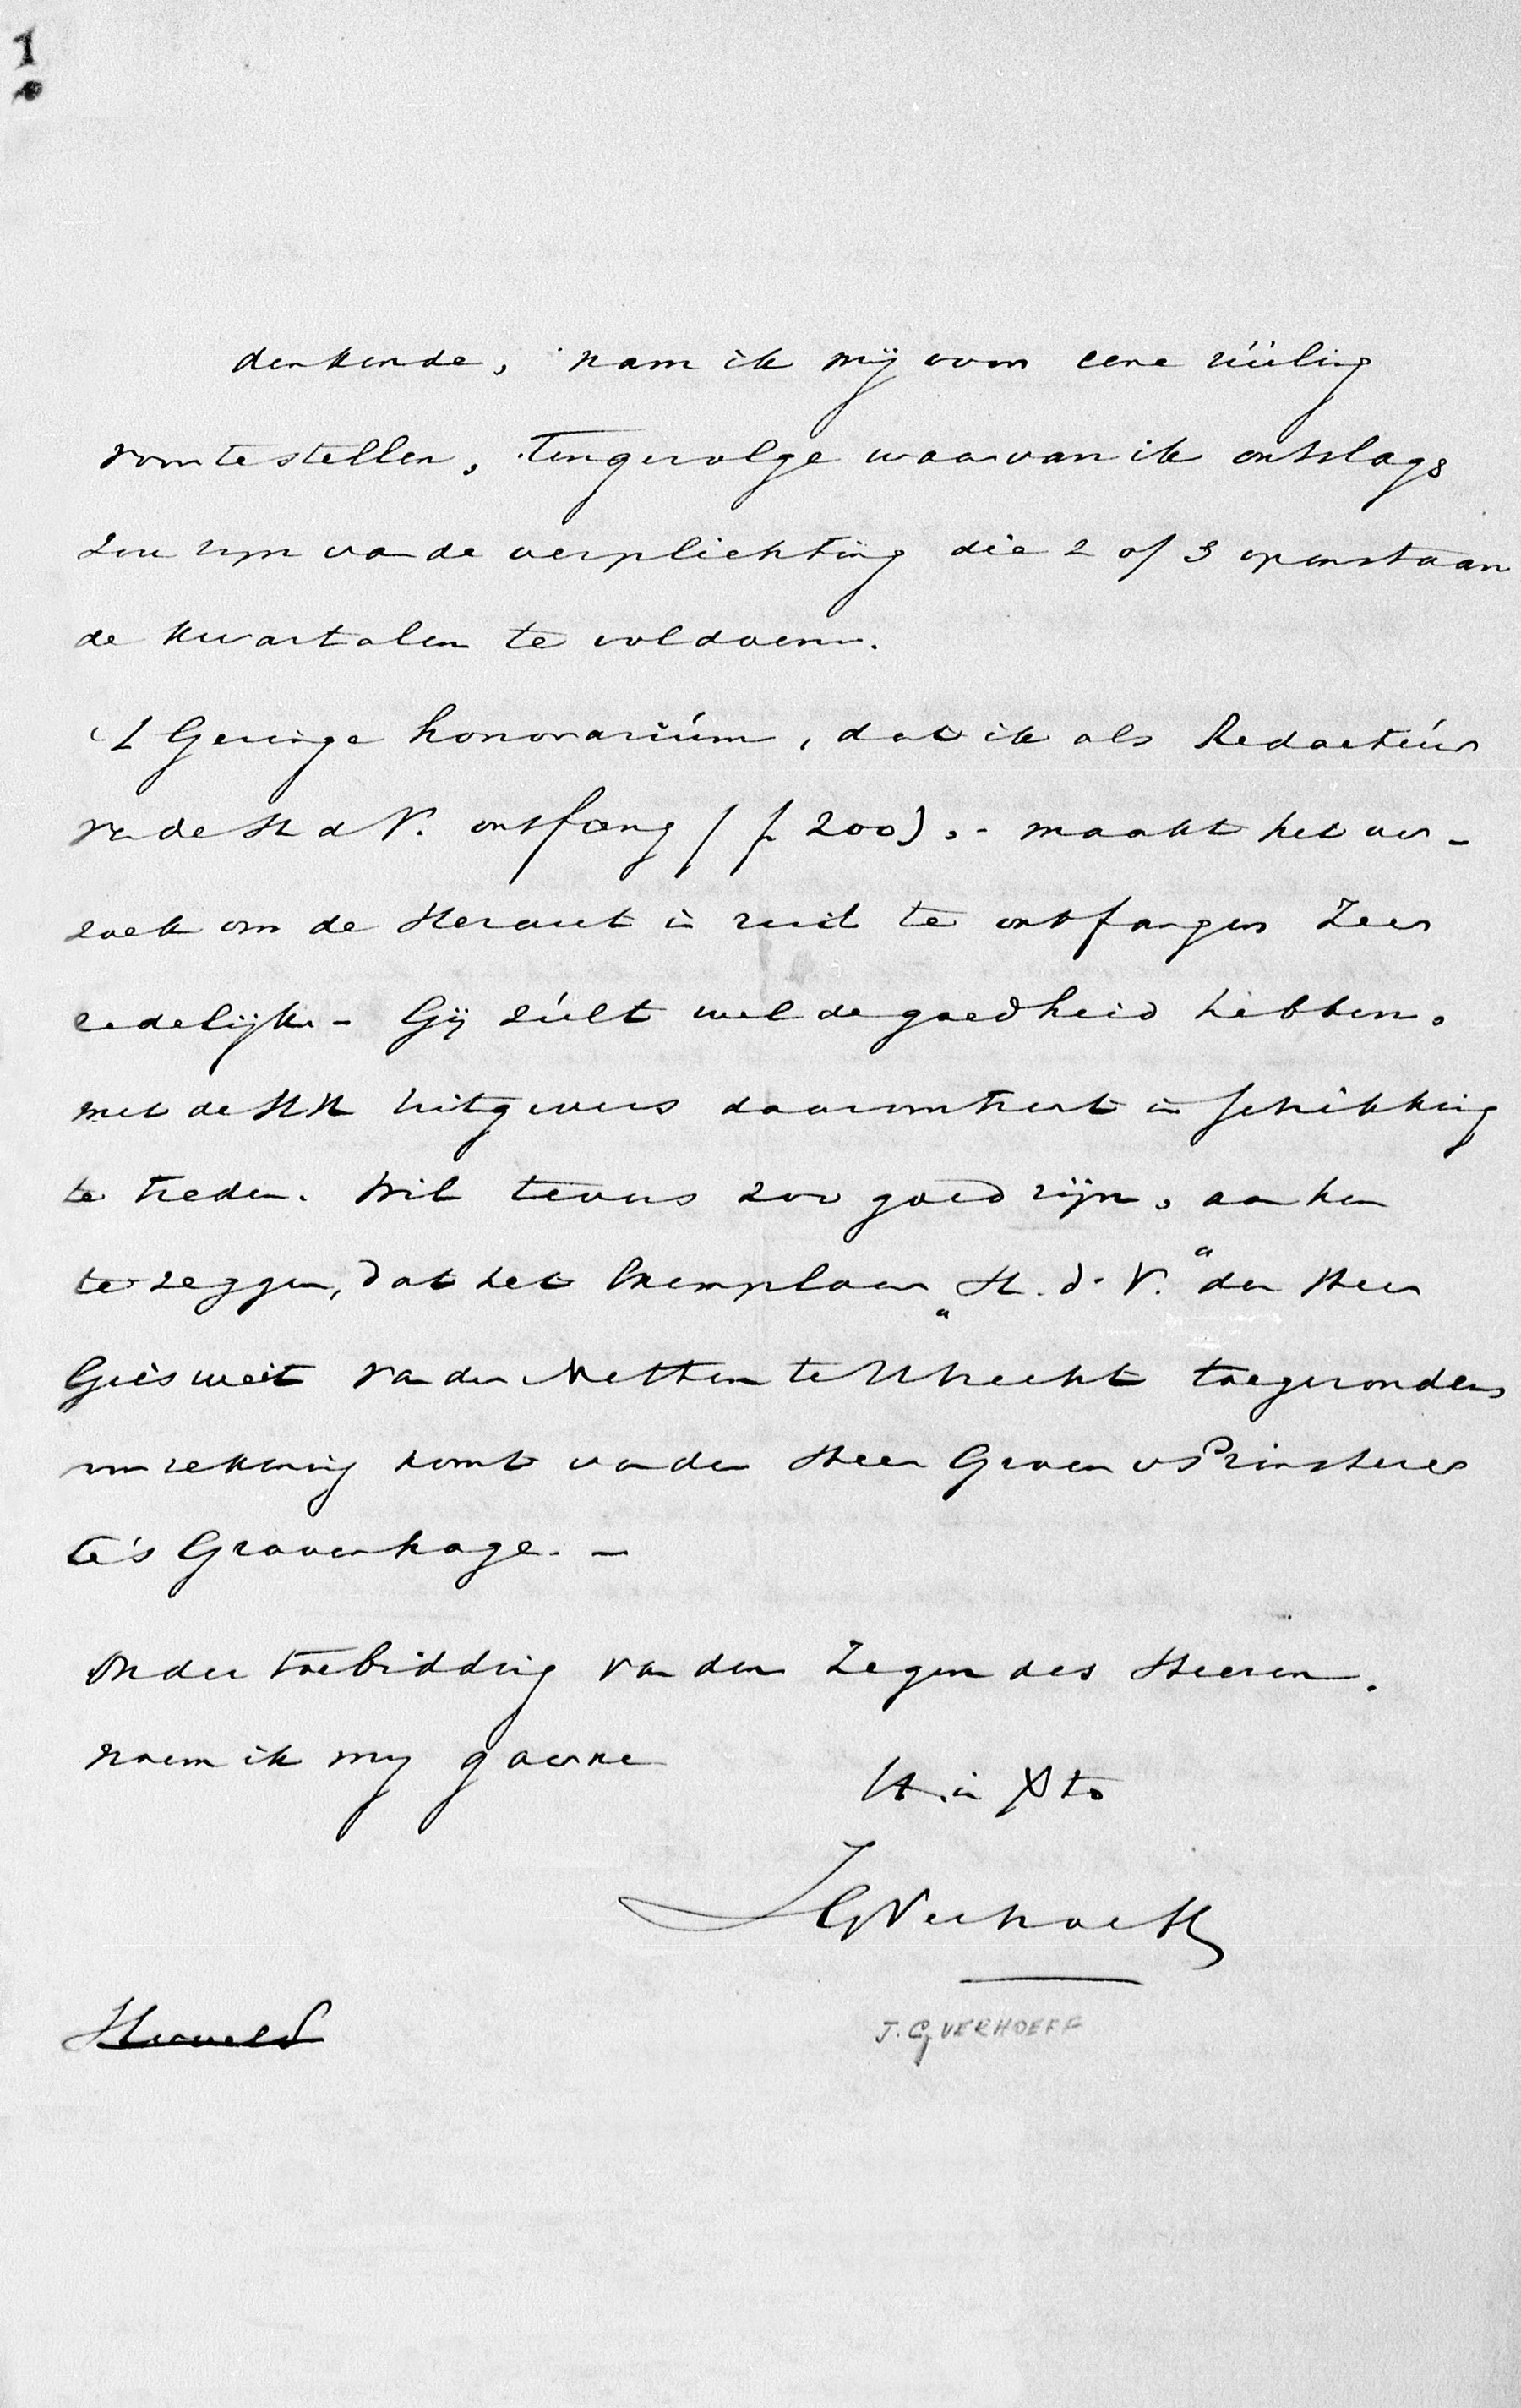 1
denkende, nam ik mij voor eene ruiling
voor te stellen, tengevolge waarvan ik ontslags
zou zijn van de verplichting die 2 of 3 openstaan
de kwartalen te voldoen.
't Geringe honorarium, dat ik als Redacteur
van de H d V. ontfang (f 200), - maakt het ver-
zoek om de Heraut in ruil te ontfangen zeer
redelijk - Gij zult wel de goedheid hebben,
met de HH Uitgevers daaromtrent in schikking
te treden. Wil tevens zoo goed zijn, aan hen
te zeggen, dat het Exemplaar „H. d. V." den Heer
Geisweit van der Netten te Utrecht toegezonden
in rekening komt van den Heer Groen v Prinsterer
te 's Gravenhage. -
Onder toebidding van den Zegen des Heeren,
noem ik mij gaarne
in Xto
JGVerhoeff
J. G VERHOEFF